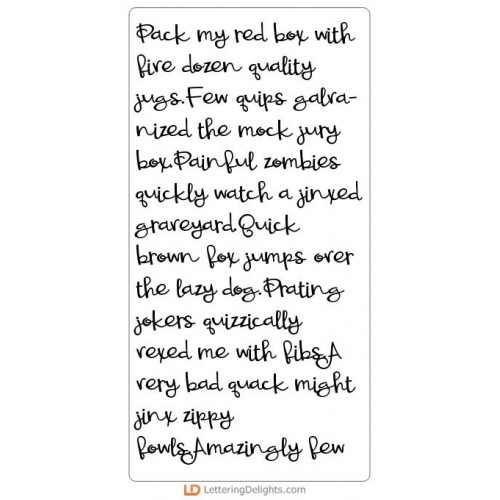 Pack my red box with
five dozen quality
jugs.Few quips galva-
nized the mock jury
box.Painful zombies
quickly watch a jinxed
graveyard.Quick
brown fox jumps over
the lazy dog.Prating
jokers quizzically
vexed me with fibs.A
very bad quack might
jinx zippy
fowls.Amazingly few
LD LetteringDelights.com